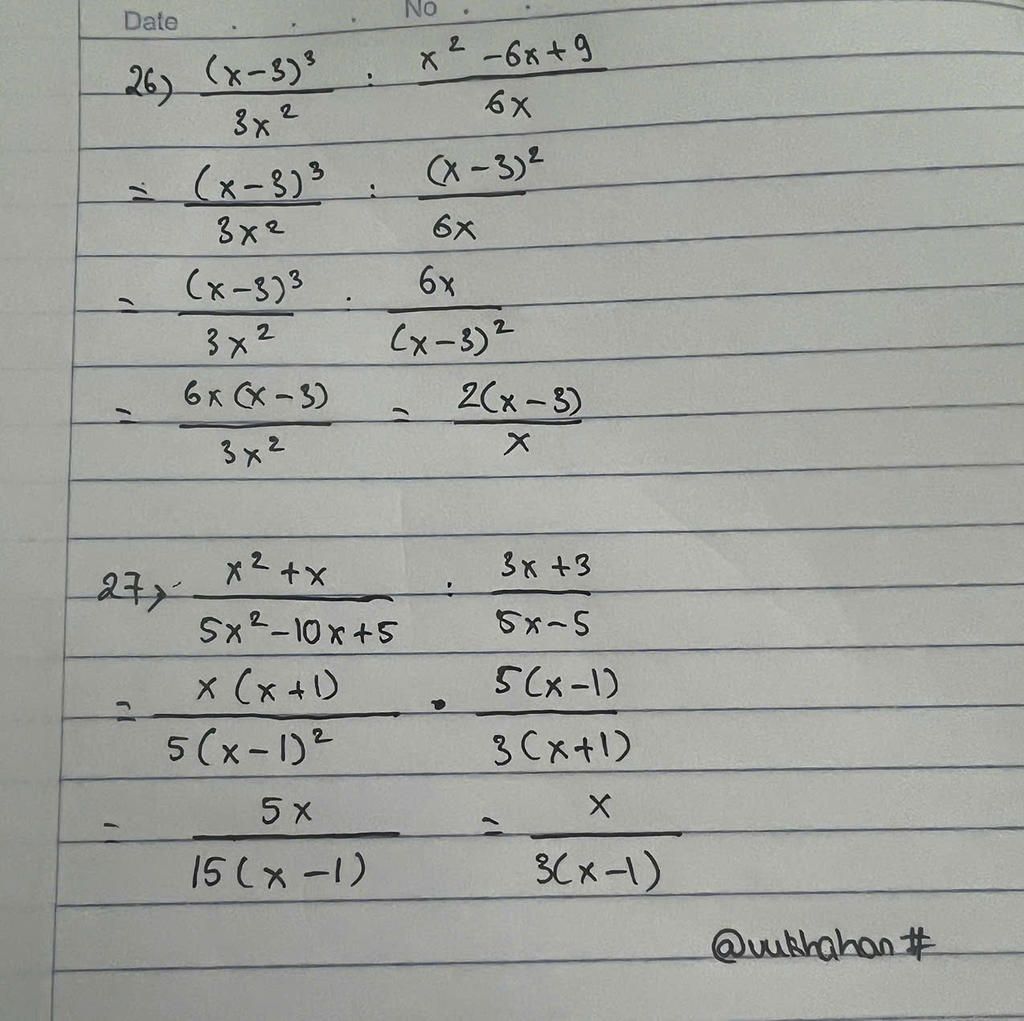 Date . . . No . .
26) (x-3)³/3x² : x² -6x+9/6x
= (x-3)³/3x² : (x-3)²/6x
= (x-3)³/3x² . 6x/(x-3)²
= 6x(x-3)/3x² = 2(x-3)/x
27) x²+x/5x²-10x+5 : 3x+3/5x-5
= x(x+1)/5(x-1)² . 5(x-1)/3(x+1)
= 5x/15(x-1) = x/3(x-1)
@vukhahan#